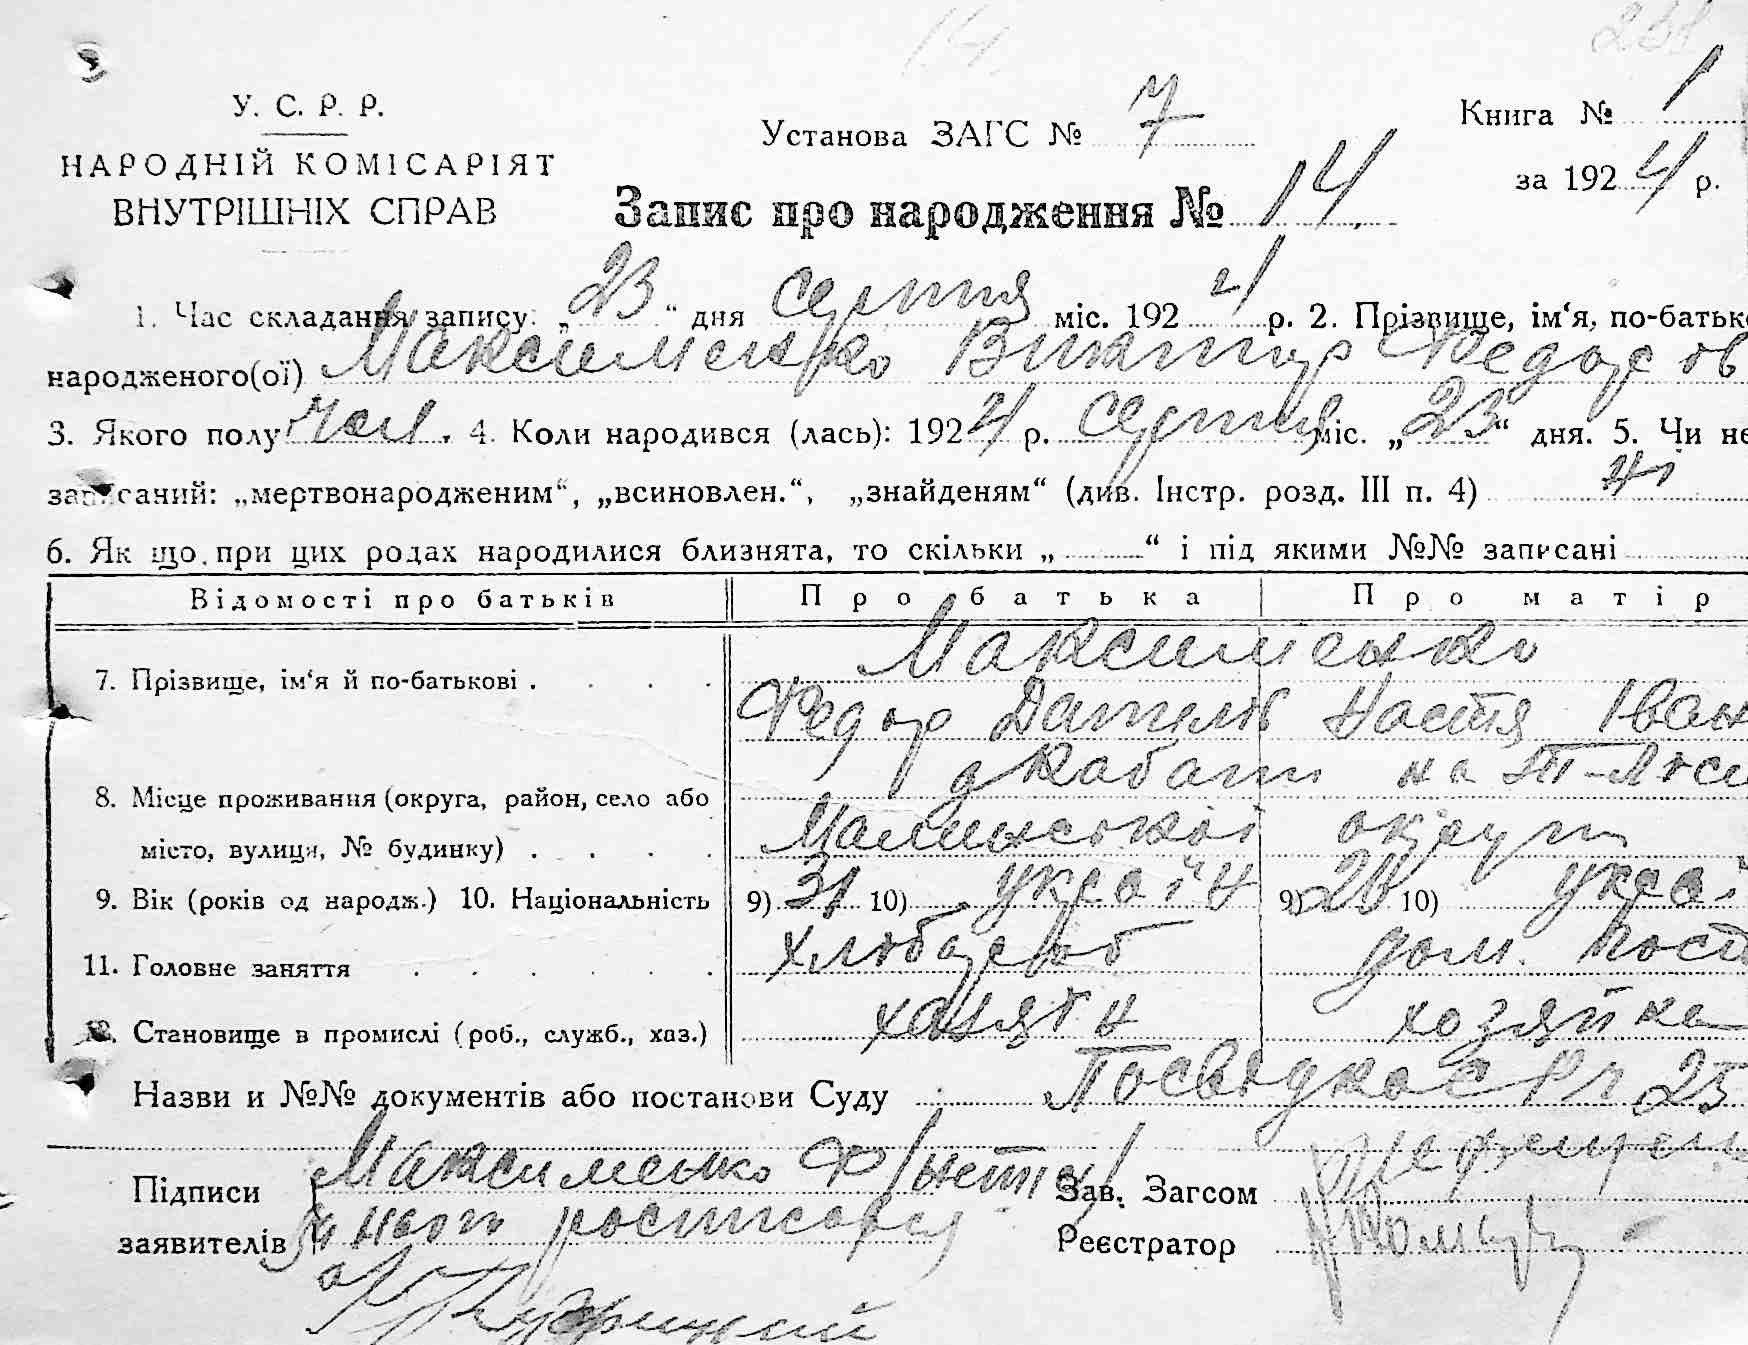 14.
У. С. Р. Р.
НАРОДНІЙ КОМІСАРІЯТ
ВНУТРІШНІХ СПРАВ
Установа ЗАГС № 7
Книга № 1
за 1924 р.
Запис про народження № 14
1. Час складання запису: „23“ дня серпня міс. 1924 р. 2. Прізвище, ім‘я, по-батьк
народженого(ої) Максименко Виктор Федоров
3. Якого полу чол. 4. Коли народився (лась): 1924 р. серпня міс. „23“ дня. 5. Чи не
записаний: „мертвонародженим“, „всиновлен.“, „знайденям“ (див. Інстр. розд. III п. 4) ні
6. Як що при цих родах народилися близнята, то скільки „ “ і під якими №№ записані
Відомості про батьків Про батька Про матір
7. Прізвище, ім‘я й по-батькові . Максименко
Федор Данилов Настя Іван
8. Місце проживання (округа, район, село або
місто, вулиця, № будинку) . Малинської округи
9. Вік (років од народж.) 10. Національність 9) 31 10) україн 9) 10) украї
11. Головне заняття хлібороб дом. госп
12. Становище в промислі (роб., служб., хаз.) хазяїн хозяйка
Назви и №№ документів або постанови Суду Посвідка с р 25
Підписи Максименко Ф
заявителів
Зав. Загсом
Реєстратор